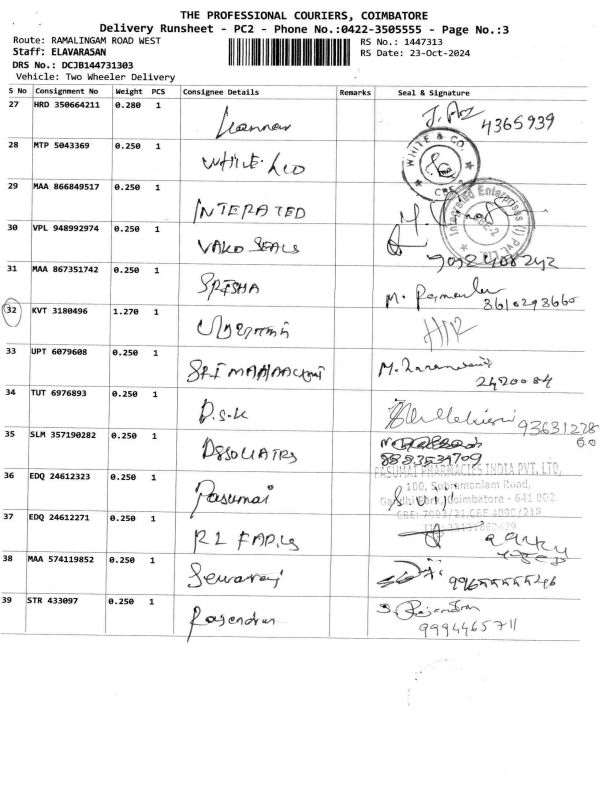 THE PROFESSIONAL COURIERS, COIMBATORE
Delivery Runsheet - PC2 - Phone No.:0422-3505555 - Page No.:3
Route: RAMALINGAM ROAD WEST
RS No.: 1447313
Staff: ELAVARASAN
RS Date: 23-Oct-2024
DRS No.: DCJB144731303
Vehicle: Two Wheeler Delivery
S No Consignment No Weight PCS Consignee Details Remarks Seal & Signature
27 HRD 350664211 0.280 1 Kannan 4365939
28 MTP 5043369 0.250 1 WHITE & CO. CBE-2
29 MAA 866849517 0.250 1 INTERATED Integrated Enterprises (I) Pvt. Ltd. CBE-2
30 VPL 948992974 0.250 1 VAKO SEALS
31 MAA 867351742 0.250 1 SRISHA M. 8610298660
32 KVT 3180496 1.270 1
33 UPT 6079608 0.250 1 2420084
34 TUT 6976893 0.250 1 D.S.K 93631228
60
35 SLM 357190282 0.250 1 ASSOCIATES 8883534709
36 EDQ 24612323 0.250 1 Pasumai
PASUMAI PHARMACIES INDIA PVT. LTD,
100, Subramaniam Road,
Coimbatore - 641 002.
37 EDQ 24612271 0.250 1
38 MAA 574119852 0.250 1 Selvaraj
39 STR 433097 0.250 1 Rajendran S. Rajendran
9994465711